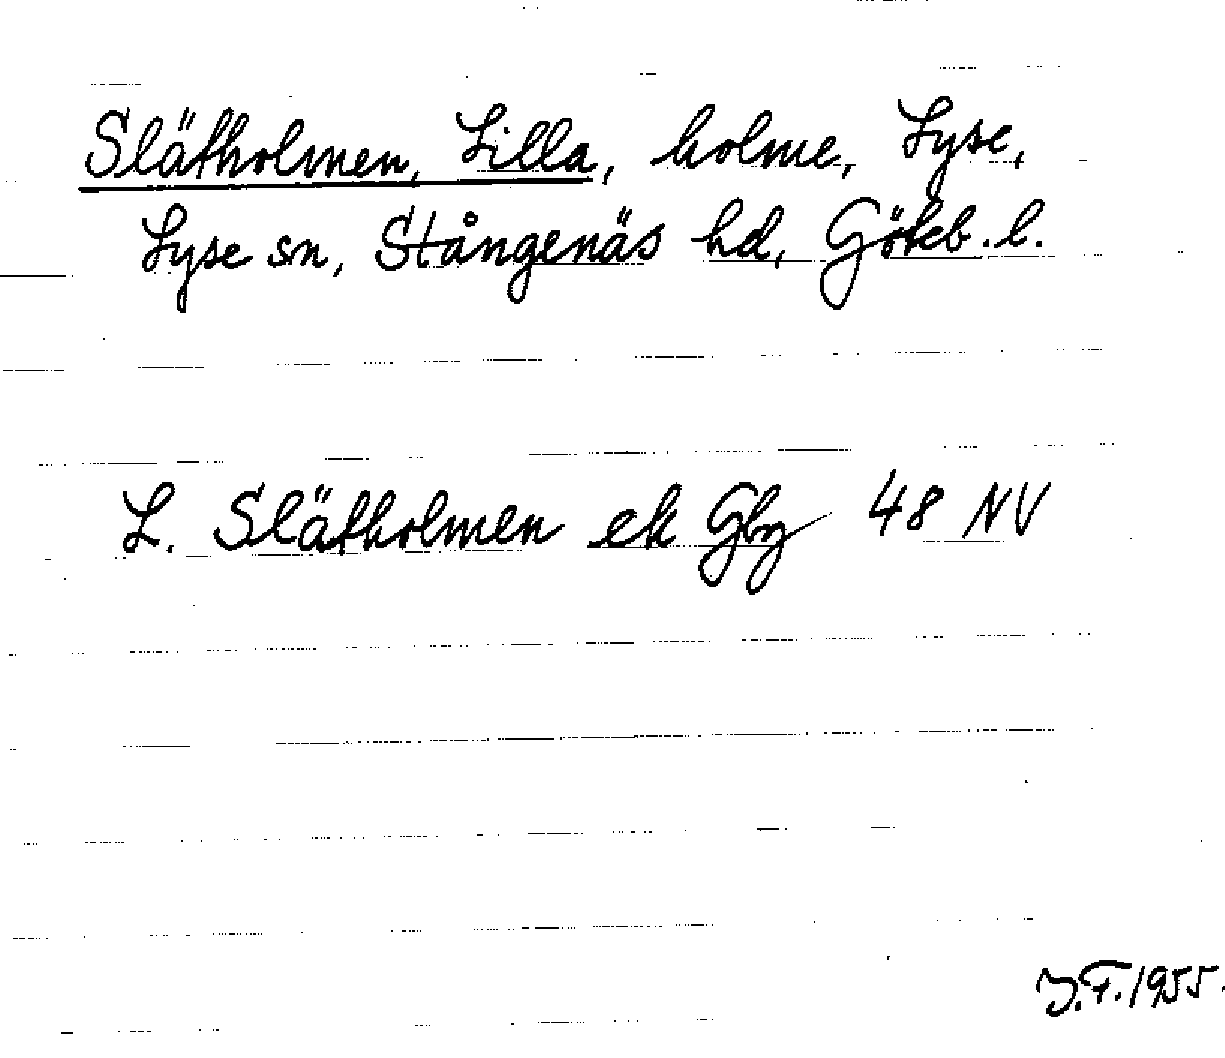 Slätholmen, Lilla, holme, Lyse,
Lyse sn, Stångenäs hd, Göteb. l.
L. Slätholmen ek Gbg 48 NV
J.F. 1955.